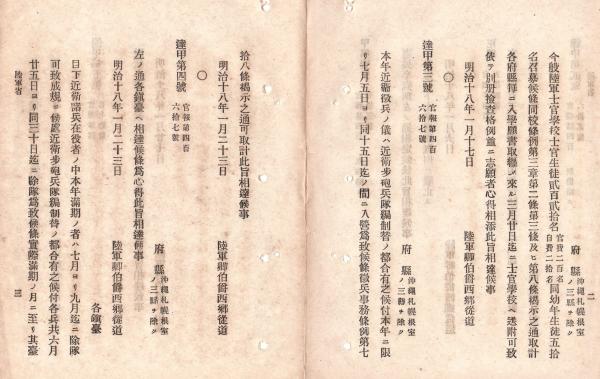 二
府縣 沖繩札幌根室ノ三縣ヲ除ク
今般陸軍士官學校士官生徒貳百貳拾名 官費二百名自費二拾名 同幼年生徒五拾
名召募候條同校條例第三章第二條第三條及ヒ第八條揭示之通取計
各府縣
入學願書取纒メ來ル三月廿日迄ニ士官學校ヘ送附可致
依テ別册檢査格例
志願者心得相添此旨相達候事
明治十八年一月十七日
陸軍卿伯爵西鄕從道
〇
達甲第三號 官報第四百六拾七號
府縣 沖繩札幌根室ノ三縣ヲ除ク
本年近衛徵兵ノ儀ハ近衛步砲兵隊編制替ノ都合有之候付本年ニ限
リ七月五日ヨリ同十五日迄ノ間ニ入營爲致候條徵兵事務條例第七
拾八條揭示之通可取計此旨相達候事
明治十八年一月二十三日
陸軍卿伯爵西鄕從道
〇
達甲第四號 官報第四百六拾七號
府縣 沖繩札幌根室ノ三縣ヲ除ク
左ノ通各鎭臺ヘ相達候條爲心得此旨相達候事
明治十八年一月二十三日
陸軍卿伯爵西鄕從道
各鎭臺
目下近衛諸兵在役者ノ中本年滿期ノ者ハ七月ヨリ九月迄ニ除隊
可致成規ノ候處近衛步砲兵隊編制替ノ都合有之候付各兵共六月
廿五日ヨリ同三十日迄ニ除隊爲致候條實際滿期ノ月ニ至リ其臺
陸軍省
三